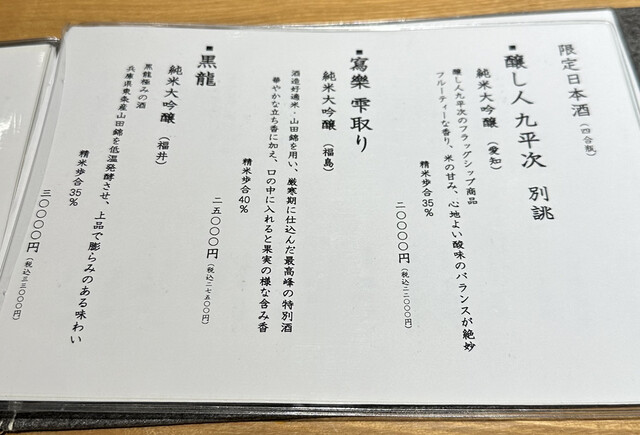 限定日本酒（四合瓶）
■醸し人 九平次 別誂
純米大吟醸（愛知）
醸し人九平次のフラッグシップ商品
フルーティーな香り、米の甘み、心地よい酸味のバランスが絶妙
精米歩合35％
二〇〇〇〇円（税込二二〇〇〇円）
■寫樂 雫取り
純米大吟醸（福島）
酒造好適米・山田錦を用い、厳寒期に仕込んだ最高峰の特別酒
華やかな立ち香に加え、口の中に入れると果実の様な含み香
精米歩合40％
二五〇〇〇円（税込二七五〇〇円）
■黒龍
純米大吟醸（福井）
黒龍極みの酒
兵庫県東条産山田錦を低温発酵させ、上品で膨らみのある味わい
精米歩合35％
三〇〇〇〇円（税込三三〇〇〇円）